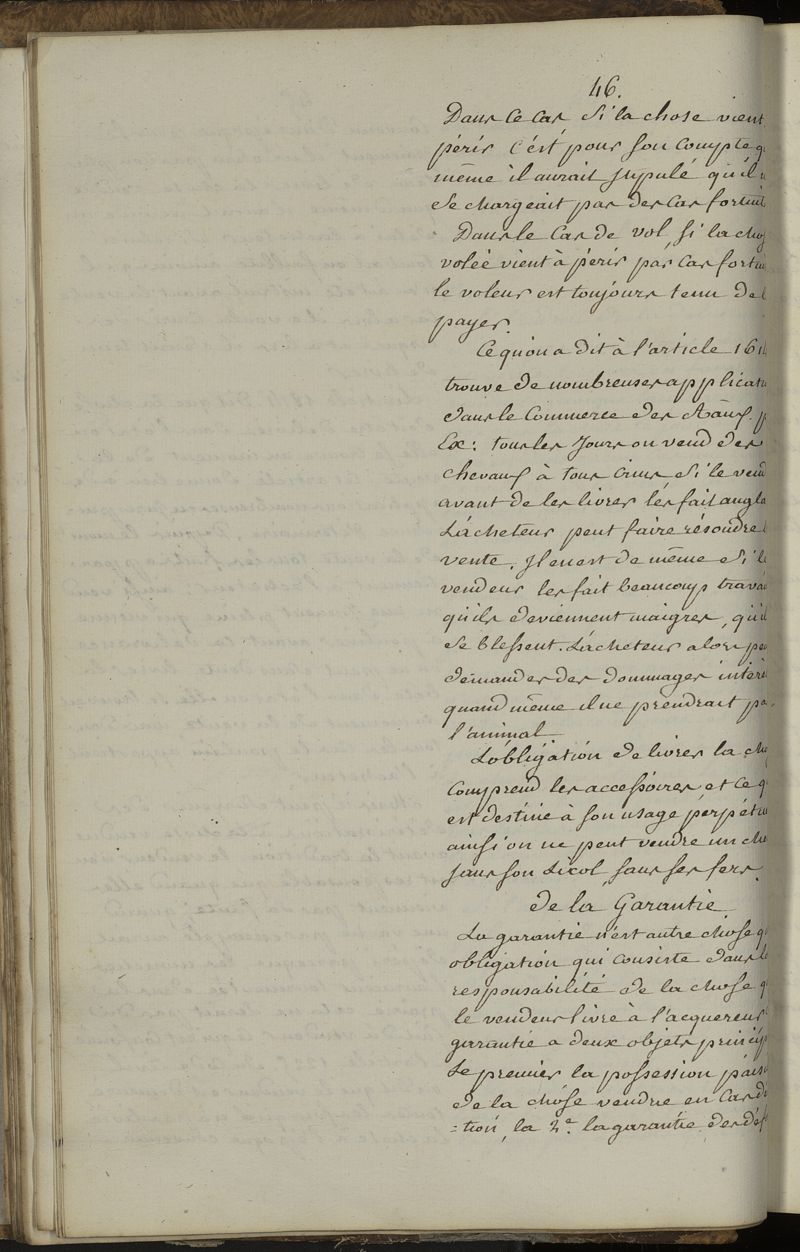 46.
Dans ce cas si la chose vient
périr c'est pour son compte q
même il aurait stipulé qu'il n
se chargeait pas des cas fortuit
Dans le cas de vol, si la chos
volée vient à périr par cas fortui
le voleur est toujours tenu de l
payer.
Ce qu'on a dit à l'article 161
trouve de nombreuses applicati
dans le Commerce des p
Ex: tous les Jours on vend des
chevaux à tous crins si le vend
avant de les livrer les fait angla
L'acheteur peut faire résoudre l
vente. Il en est de même si le
vendeur les fait beaucoup travai
qu'ils deviennent maigres, qu'il
se blessent. L'acheteur alors peu
demander des dommages intérê
quand même il ne prendrait pa
l'animal
L'obligation de livrer la cho
Comprend les accessoires et ce q
est destiné à son usage perpétue
ainsi on ne peut vendre un che
sans son Licol, sans ses fers.
De la Garantie
La garantie n'est autre chose q
obligation qui consiste dans l
responsabilité de la chose q
le vendeur livre à l'acquereur
garantie a deux objets princip
Le premier la possession pais
de la chose vendue en cas d
=tion, la 2e. la garantie des déf